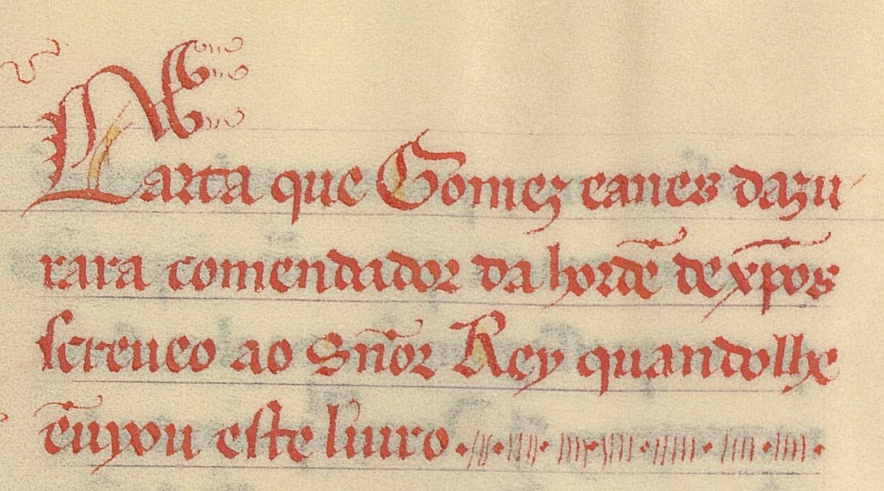 Carta que Gomez eanes dazu
rara comendador da hordẽ de xp̃os
screueo ao Sñor Rey quandolhe
ẽuyou este liuro